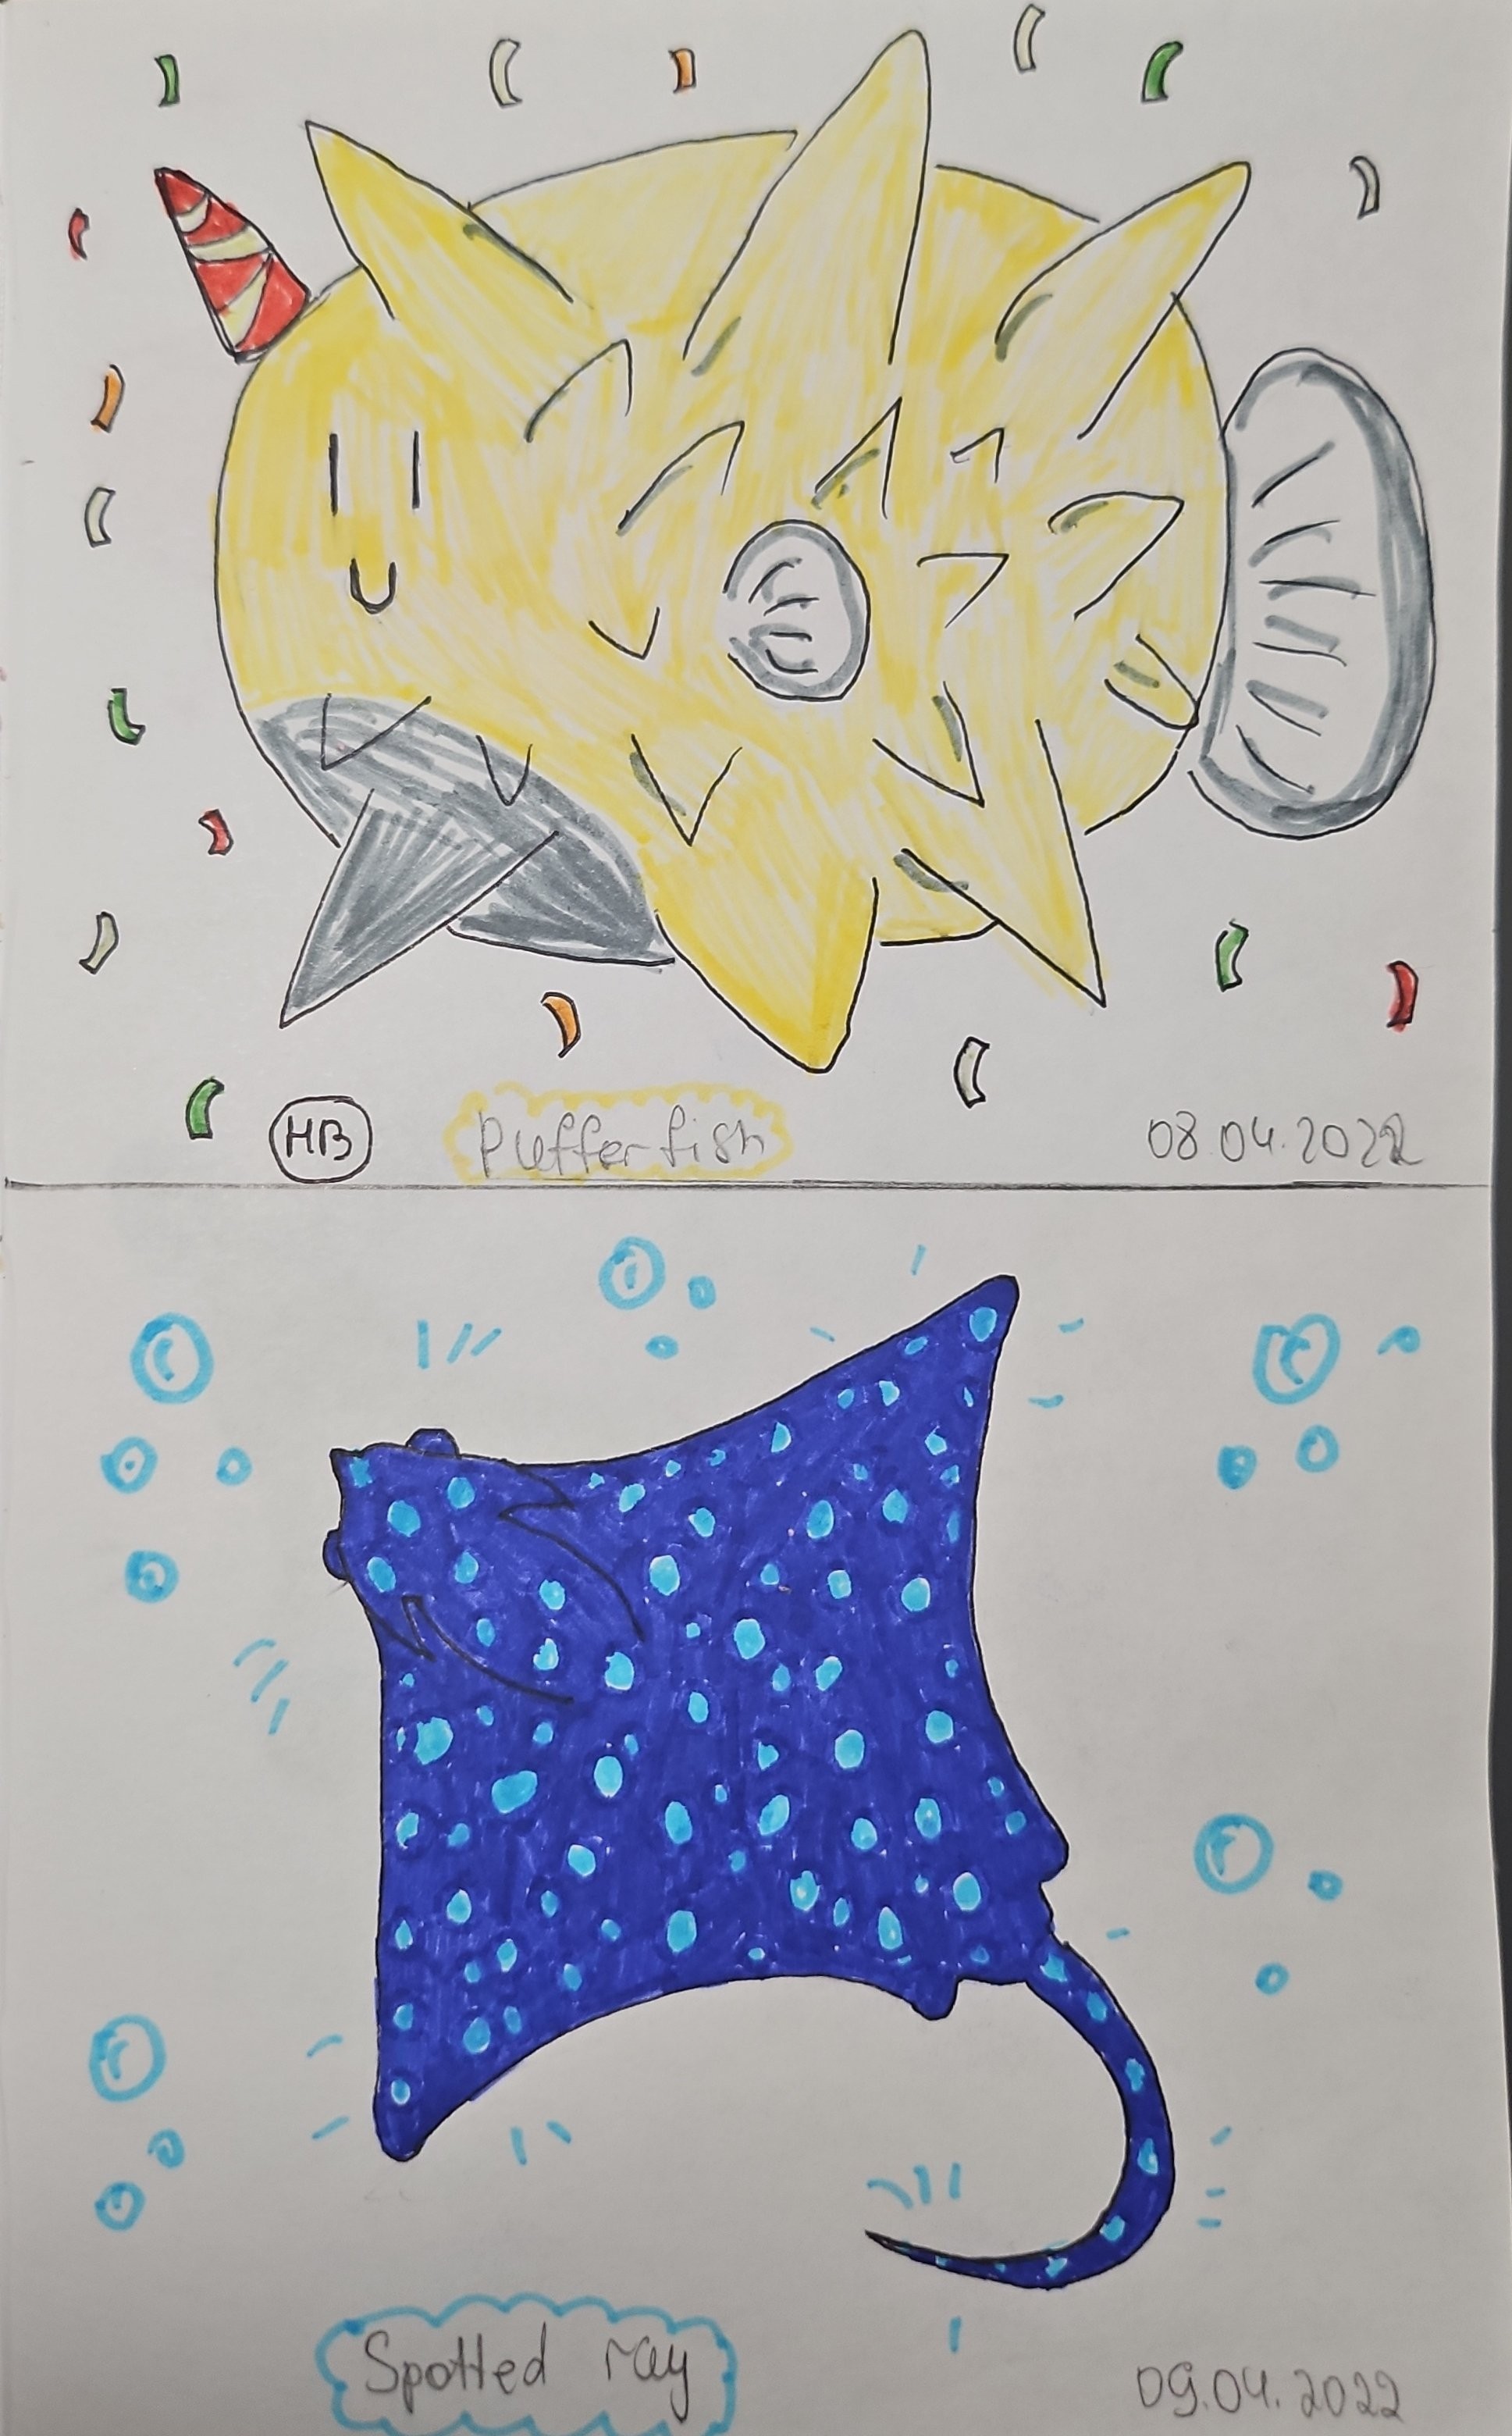 HB Pufferfish 08.04.2022
Spotted ray 09.04.2022